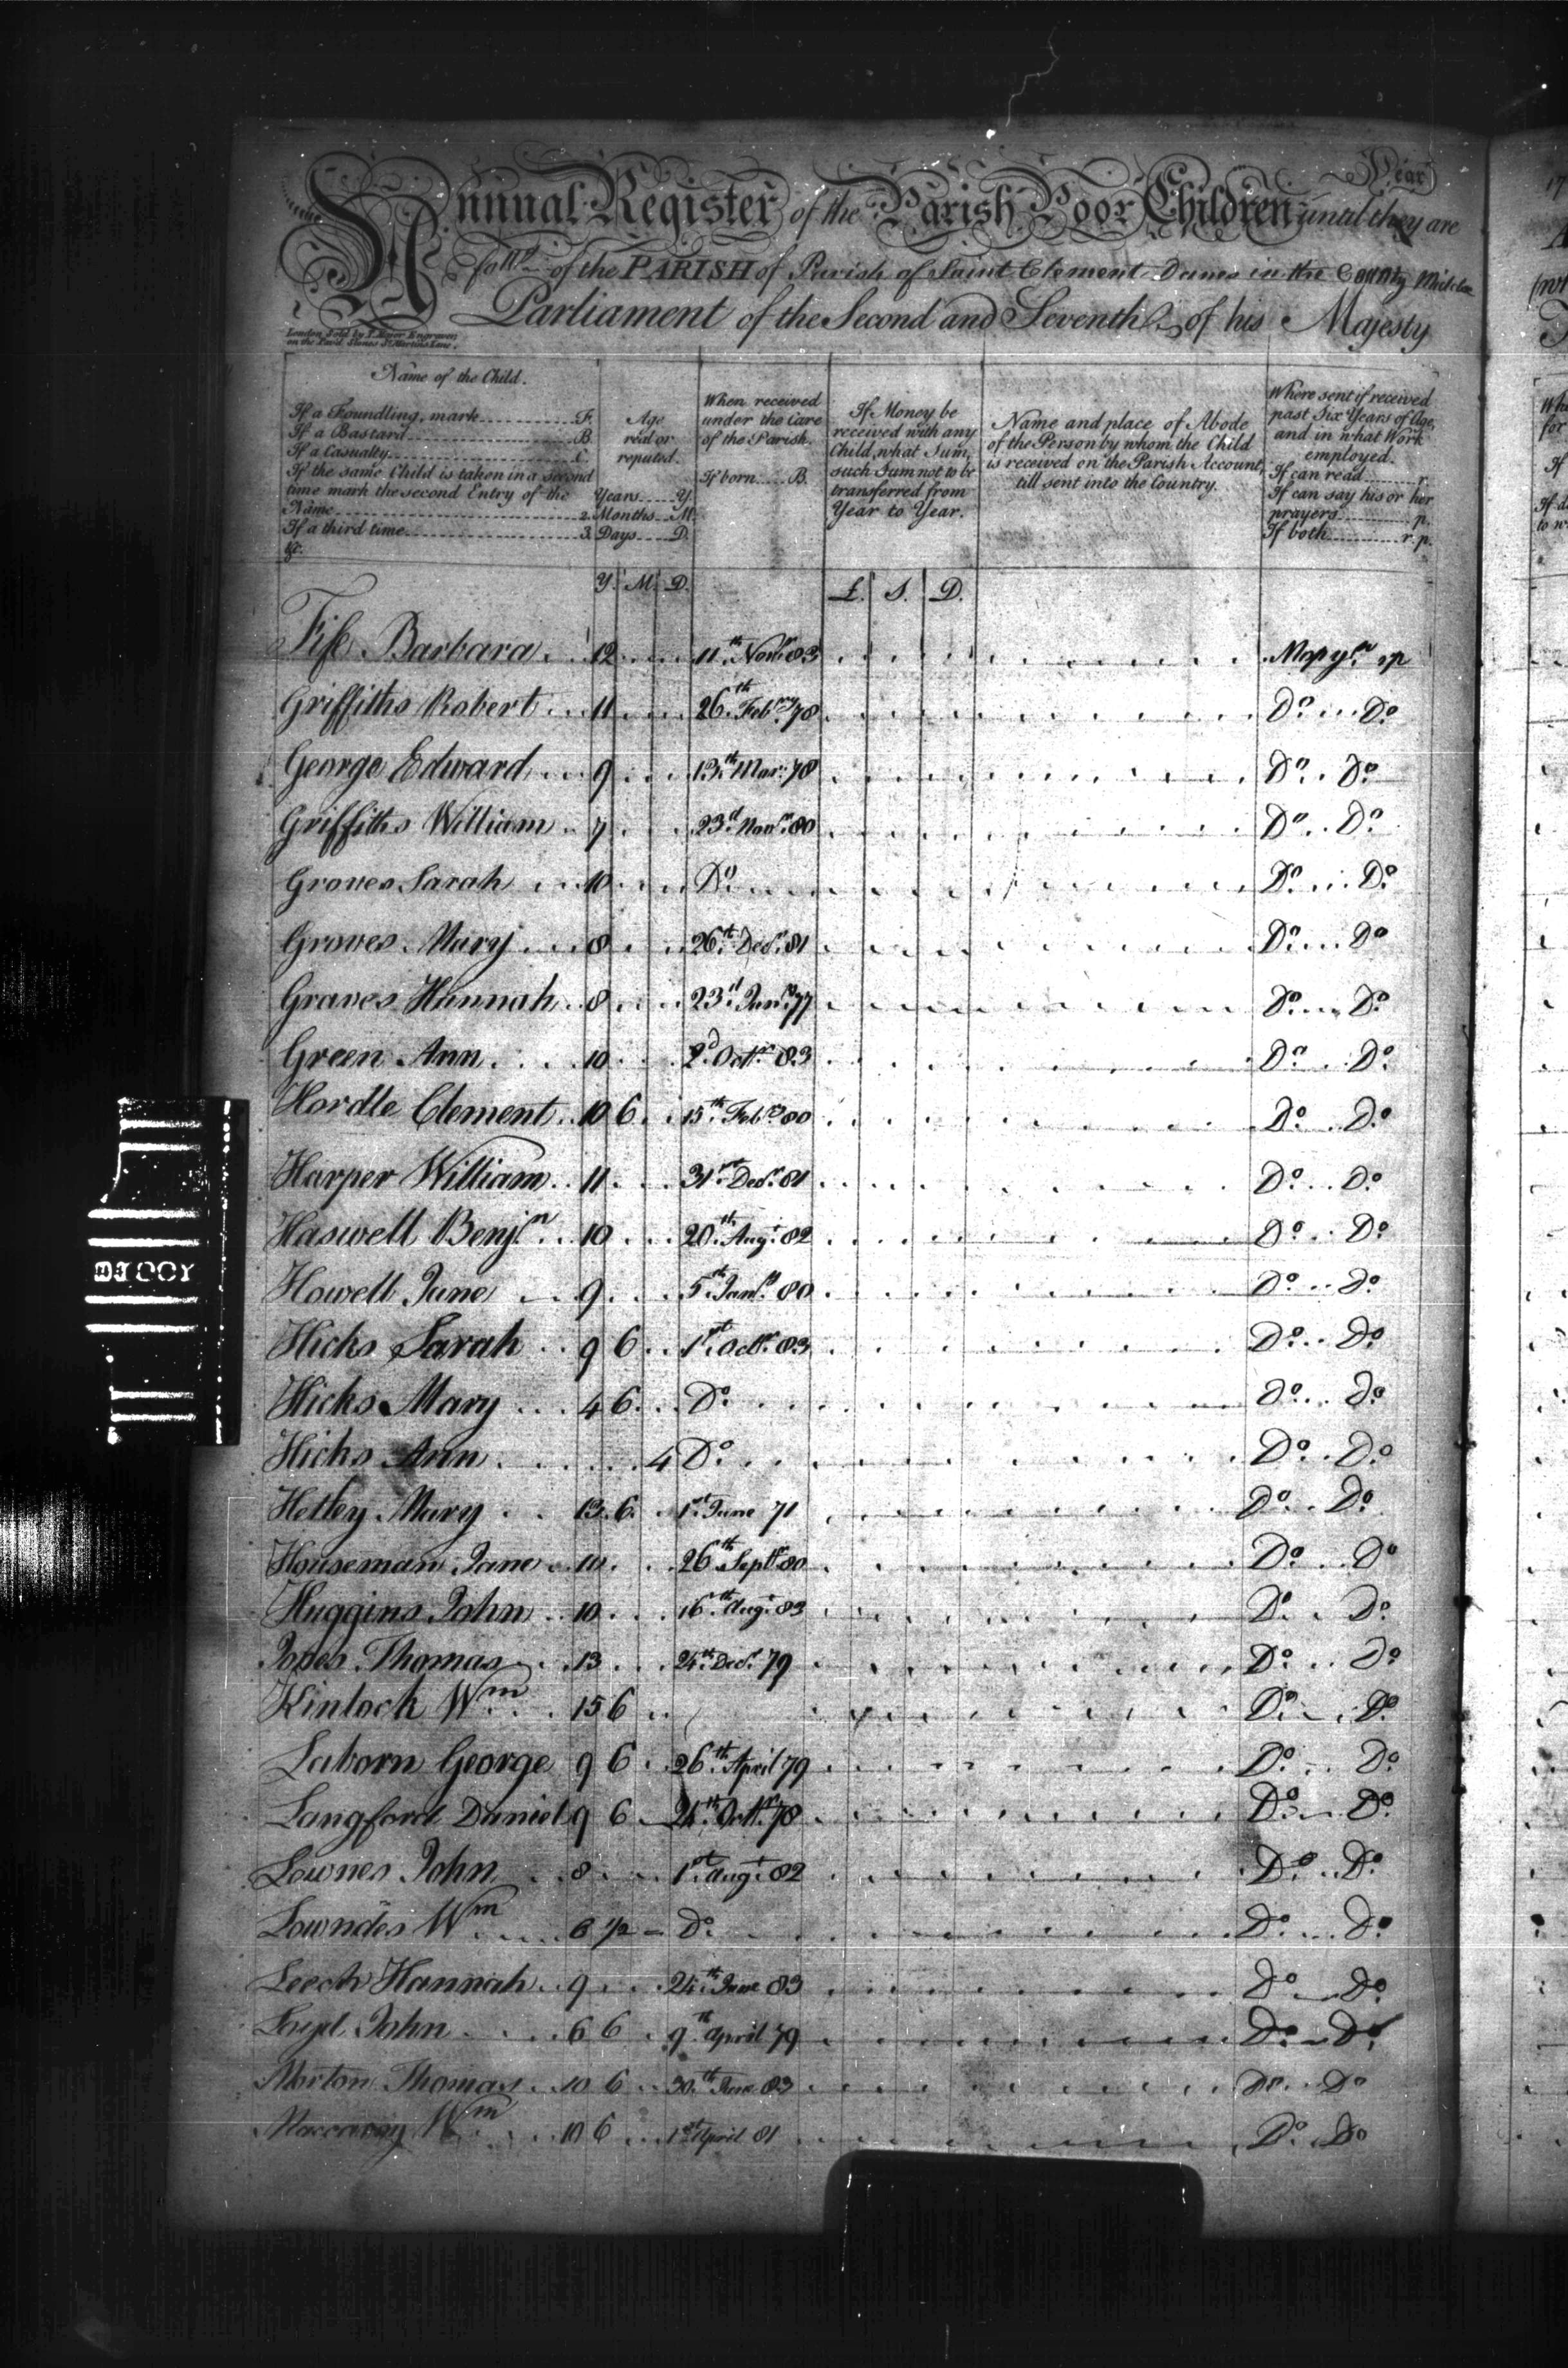 Year
Annual Register of the Parish Poor Children until they are
of the PARISH of Parish of Saint Clement Danes in the County Middx
Parliament of the Second and Seventh of his Majesty
London Sold by Engraver
on the Pav'd Stones St Martins Lane.
Name of the Child.
If a Foundling, mark F.
If a Bastard B.
If a Casualty C.
If the same Child is taken in a second
time mark the second Entry of the
Name 2.
If a third time 3.
&c.
Age
real or
reputed.
Years Y.
Months M.
Days D.
When received
under the Care
of the Parish.
If born B.
If Money be
received with any
Child, what Sum,
such Sum not to be
transferred from
Year to Year.
Name and place of Abode
of the Person by whom the Child
is received on the Parish Account,
till sent into the Country.
Where sent if received
past Six Years of Age,
and in what Work
employed.
If can read r.
If can say his or her
prayers p.
If both r. p.
Y. M. D. £. S. D.
Fife Barbara 12 11th Novr 83 rp
Griffiths Robert 11 26th Febry 78 Do Do
George Edward 9 13th Mar. 78 Do Do
Griffiths William 7 23d Novr 80 Do Do
Groves Sarah 10 Do Do Do
Groves Mary 8 26th Decr 81 Do Do
Graves Hannah 8 23d Jany 77 Do Do
Green Ann 10 2d Octr 83 Do Do
Hordle Clement 10 6 15th Feby 80 Do Do
Harper William 11 31st Decr 81 Do Do
Haswell Benjn 10 20th Augt 82 Do Do
Howell Jane 9 5th Jany 80 Do Do
Hicks Sarah 9 6 1st Octr 83 Do Do
Hicks Mary 4 6 Do Do Do
Hicks Ann 4 Do Do Do
Hetley Mary 13 6 1st June 71 Do Do
Houseman Jane 10 26th Septr 80 Do Do
Huggins John 10 16th Augt 83 Do Do
Jones Thomas 13 24th Decr 79 Do Do
Kinlock Wm 15 6 Do Do
Laborn George 9 6 26th April 79 Do Do
Langford Daniel 9 6 24th Octr 78 Do Do
Lownes John 8 1st Augt 82 Do Do
Lowndes Wm 6 1/2 Do Do Do
Leech Hannah 9 24th June 83 Do Do
Loyd John 6 6 9th April 79 Do Do
Morton Thomas 10 6 30th June 83 Do Do
Wm 10 6 1st April 81 Do Do